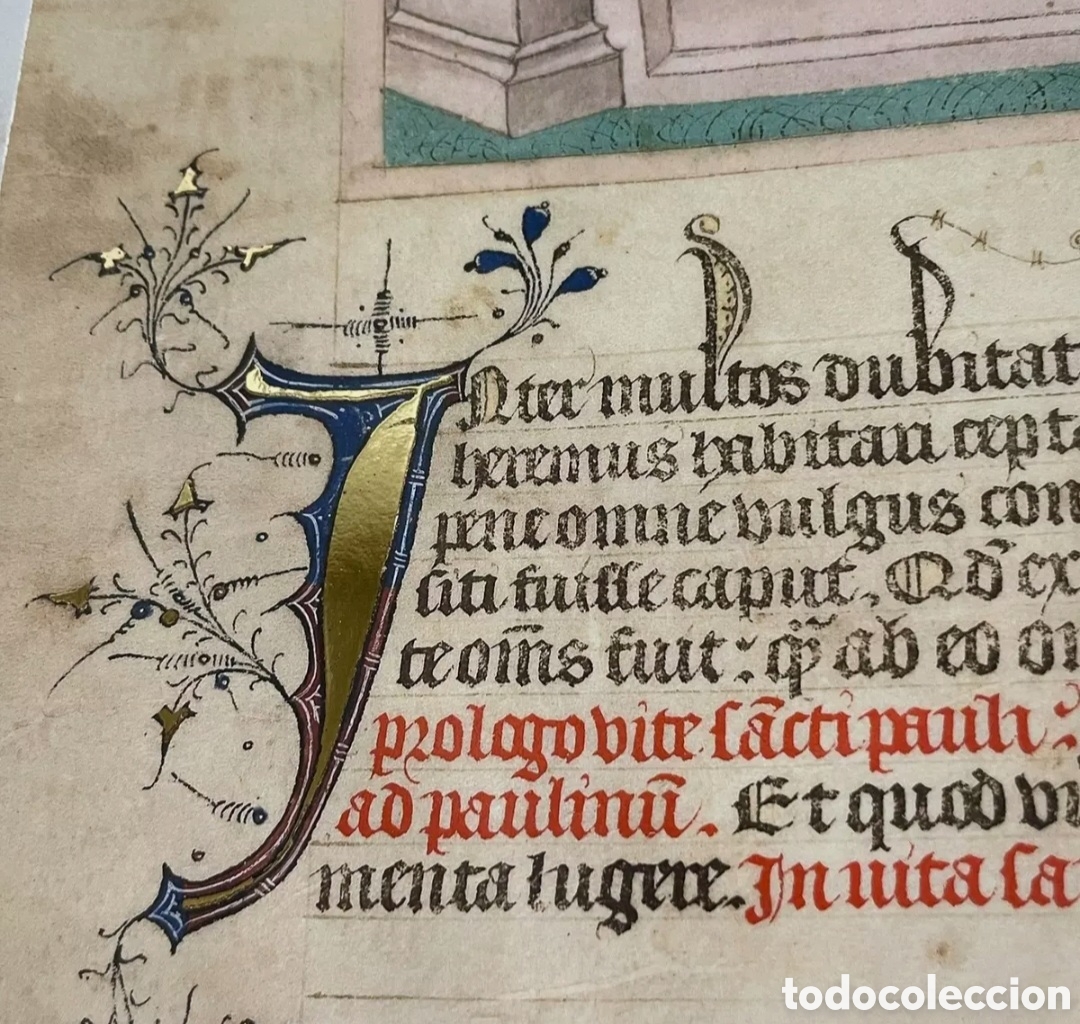 Inter multos dubitat
heremus habitari cepta
pene omne vulgus con
siti fuisse caput. Qd̄ ex
te om̄s fuit: qꝫ ab eo om
prologo vite sācti pauli:
ad paulinū. Et quod vi
menta lugere. In uita sa
todocoleccion